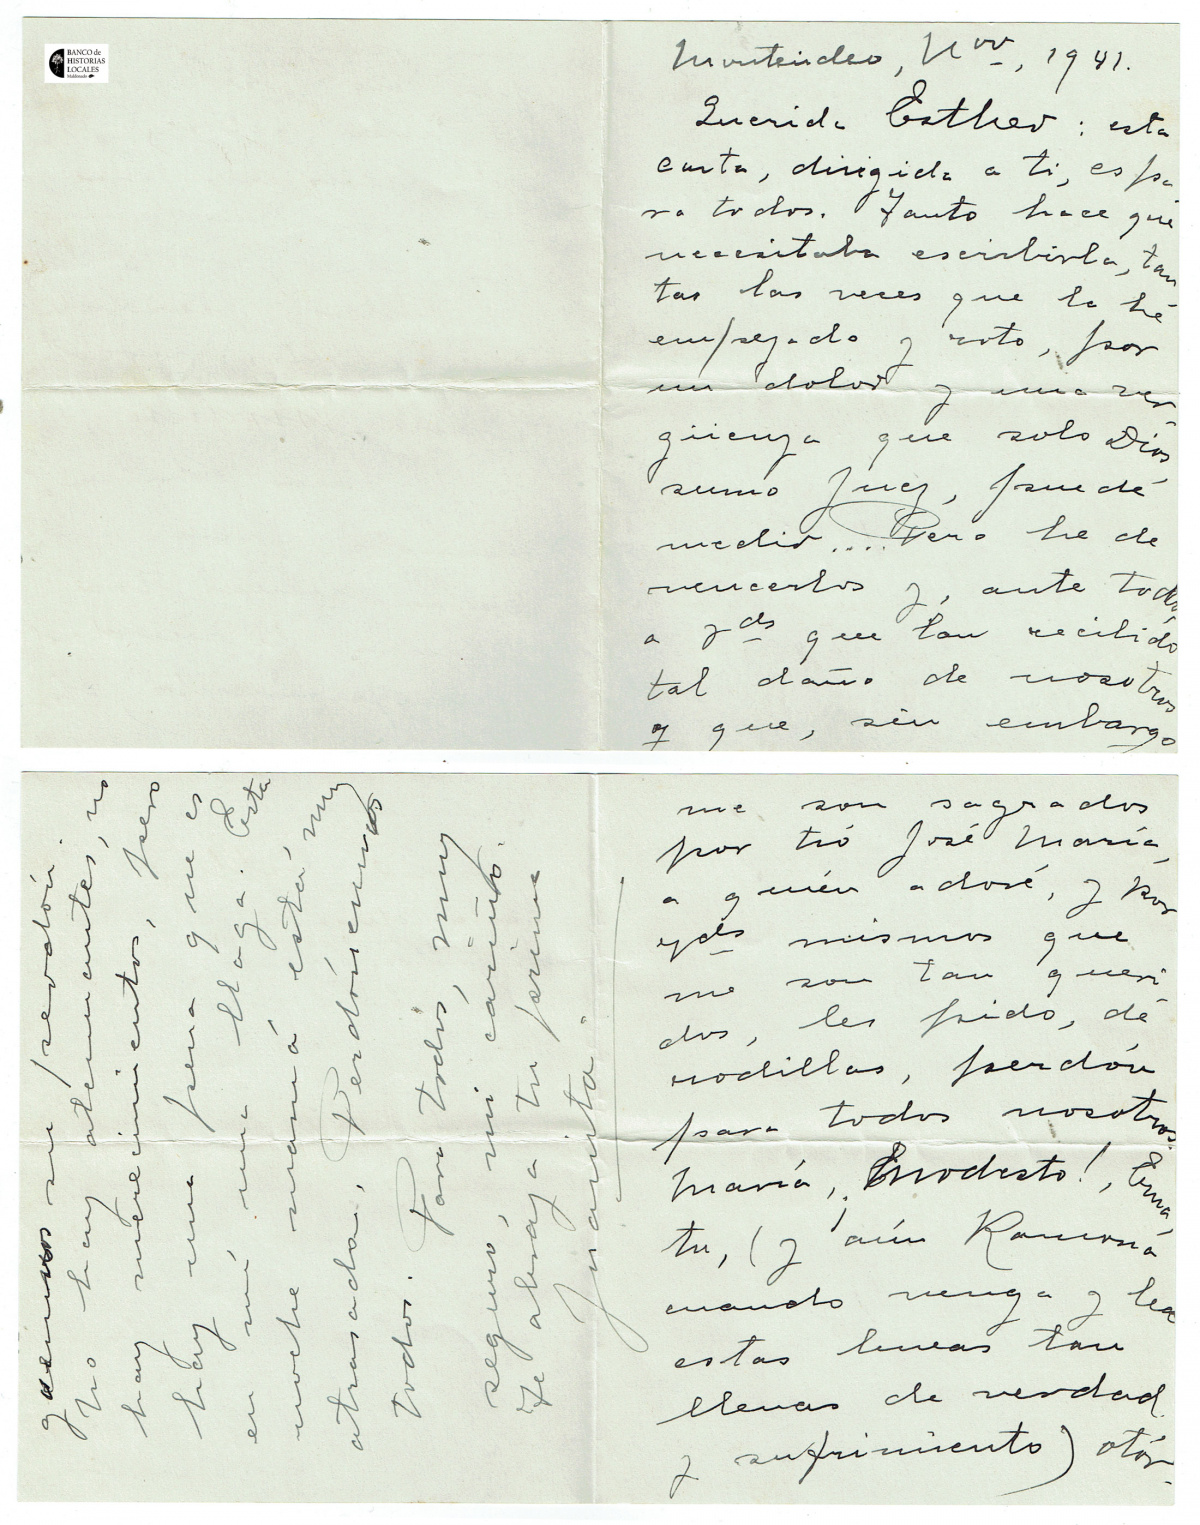 BANCO de
HISTORIAS
LOCALES
Maldonado
Montevideo, Nov., 1941.
Querida Esther: esta
carta, dirigida a ti, es pa
ra todos. Tanto hace que
necesitaba escribirla, tan
tas las veces que la hé
empezado y roto, por
un dolor y una ver
güenza que solo Dios,
sumo Juez, puedé
medir.... Pero he de
vencerlos y, ante todo
a Vds que han recibido
tal daño de nosotros
y que, sin embargo
me son sagrados
por tió José María,
a quién adoré, y por
Vds mismos que
me son tan queri
dos, les pido, dé
rodillas, perdón
para todos nosotros.
María, ¡Modesto!, Ema,
tu, (y aún Ramona
cuando venga y lea
estas lineas tan
llenas de verdad
y sufrimiento) otór-
guennos su perdón.
No hay atenuantes, no
hay merecimientos, pero
hay una pena que es
en mí una llaga. Esta
noche mamá está muy
atrasada. Perdónennos
todos. Para todos, muy
seguro, mi cariño.
Te abraza tu prima
Juanita.